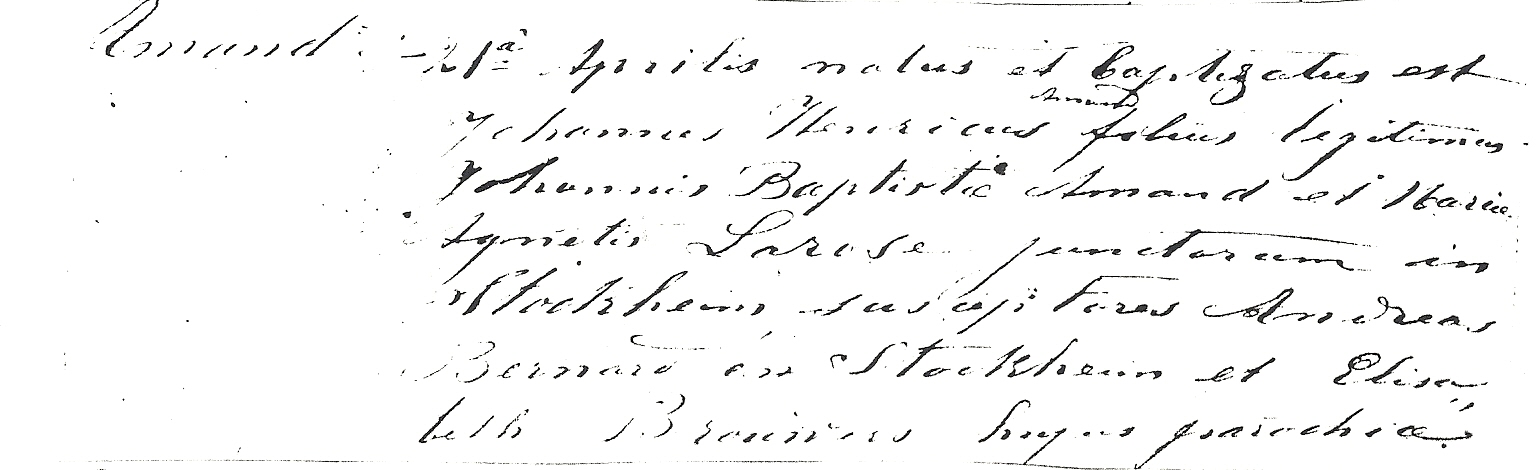 Amand 21ª Aprilis natus et baptizatus est
Amand
Johannes Henricus filius legitimus
Johannis Baptistæ Amand et Mariæ
Agnetis Larose junctorum in
Stockheim, susceptores Andreas
Bernard in Stockheim et Elisa„
beth Brouwers hujus parochiæ.